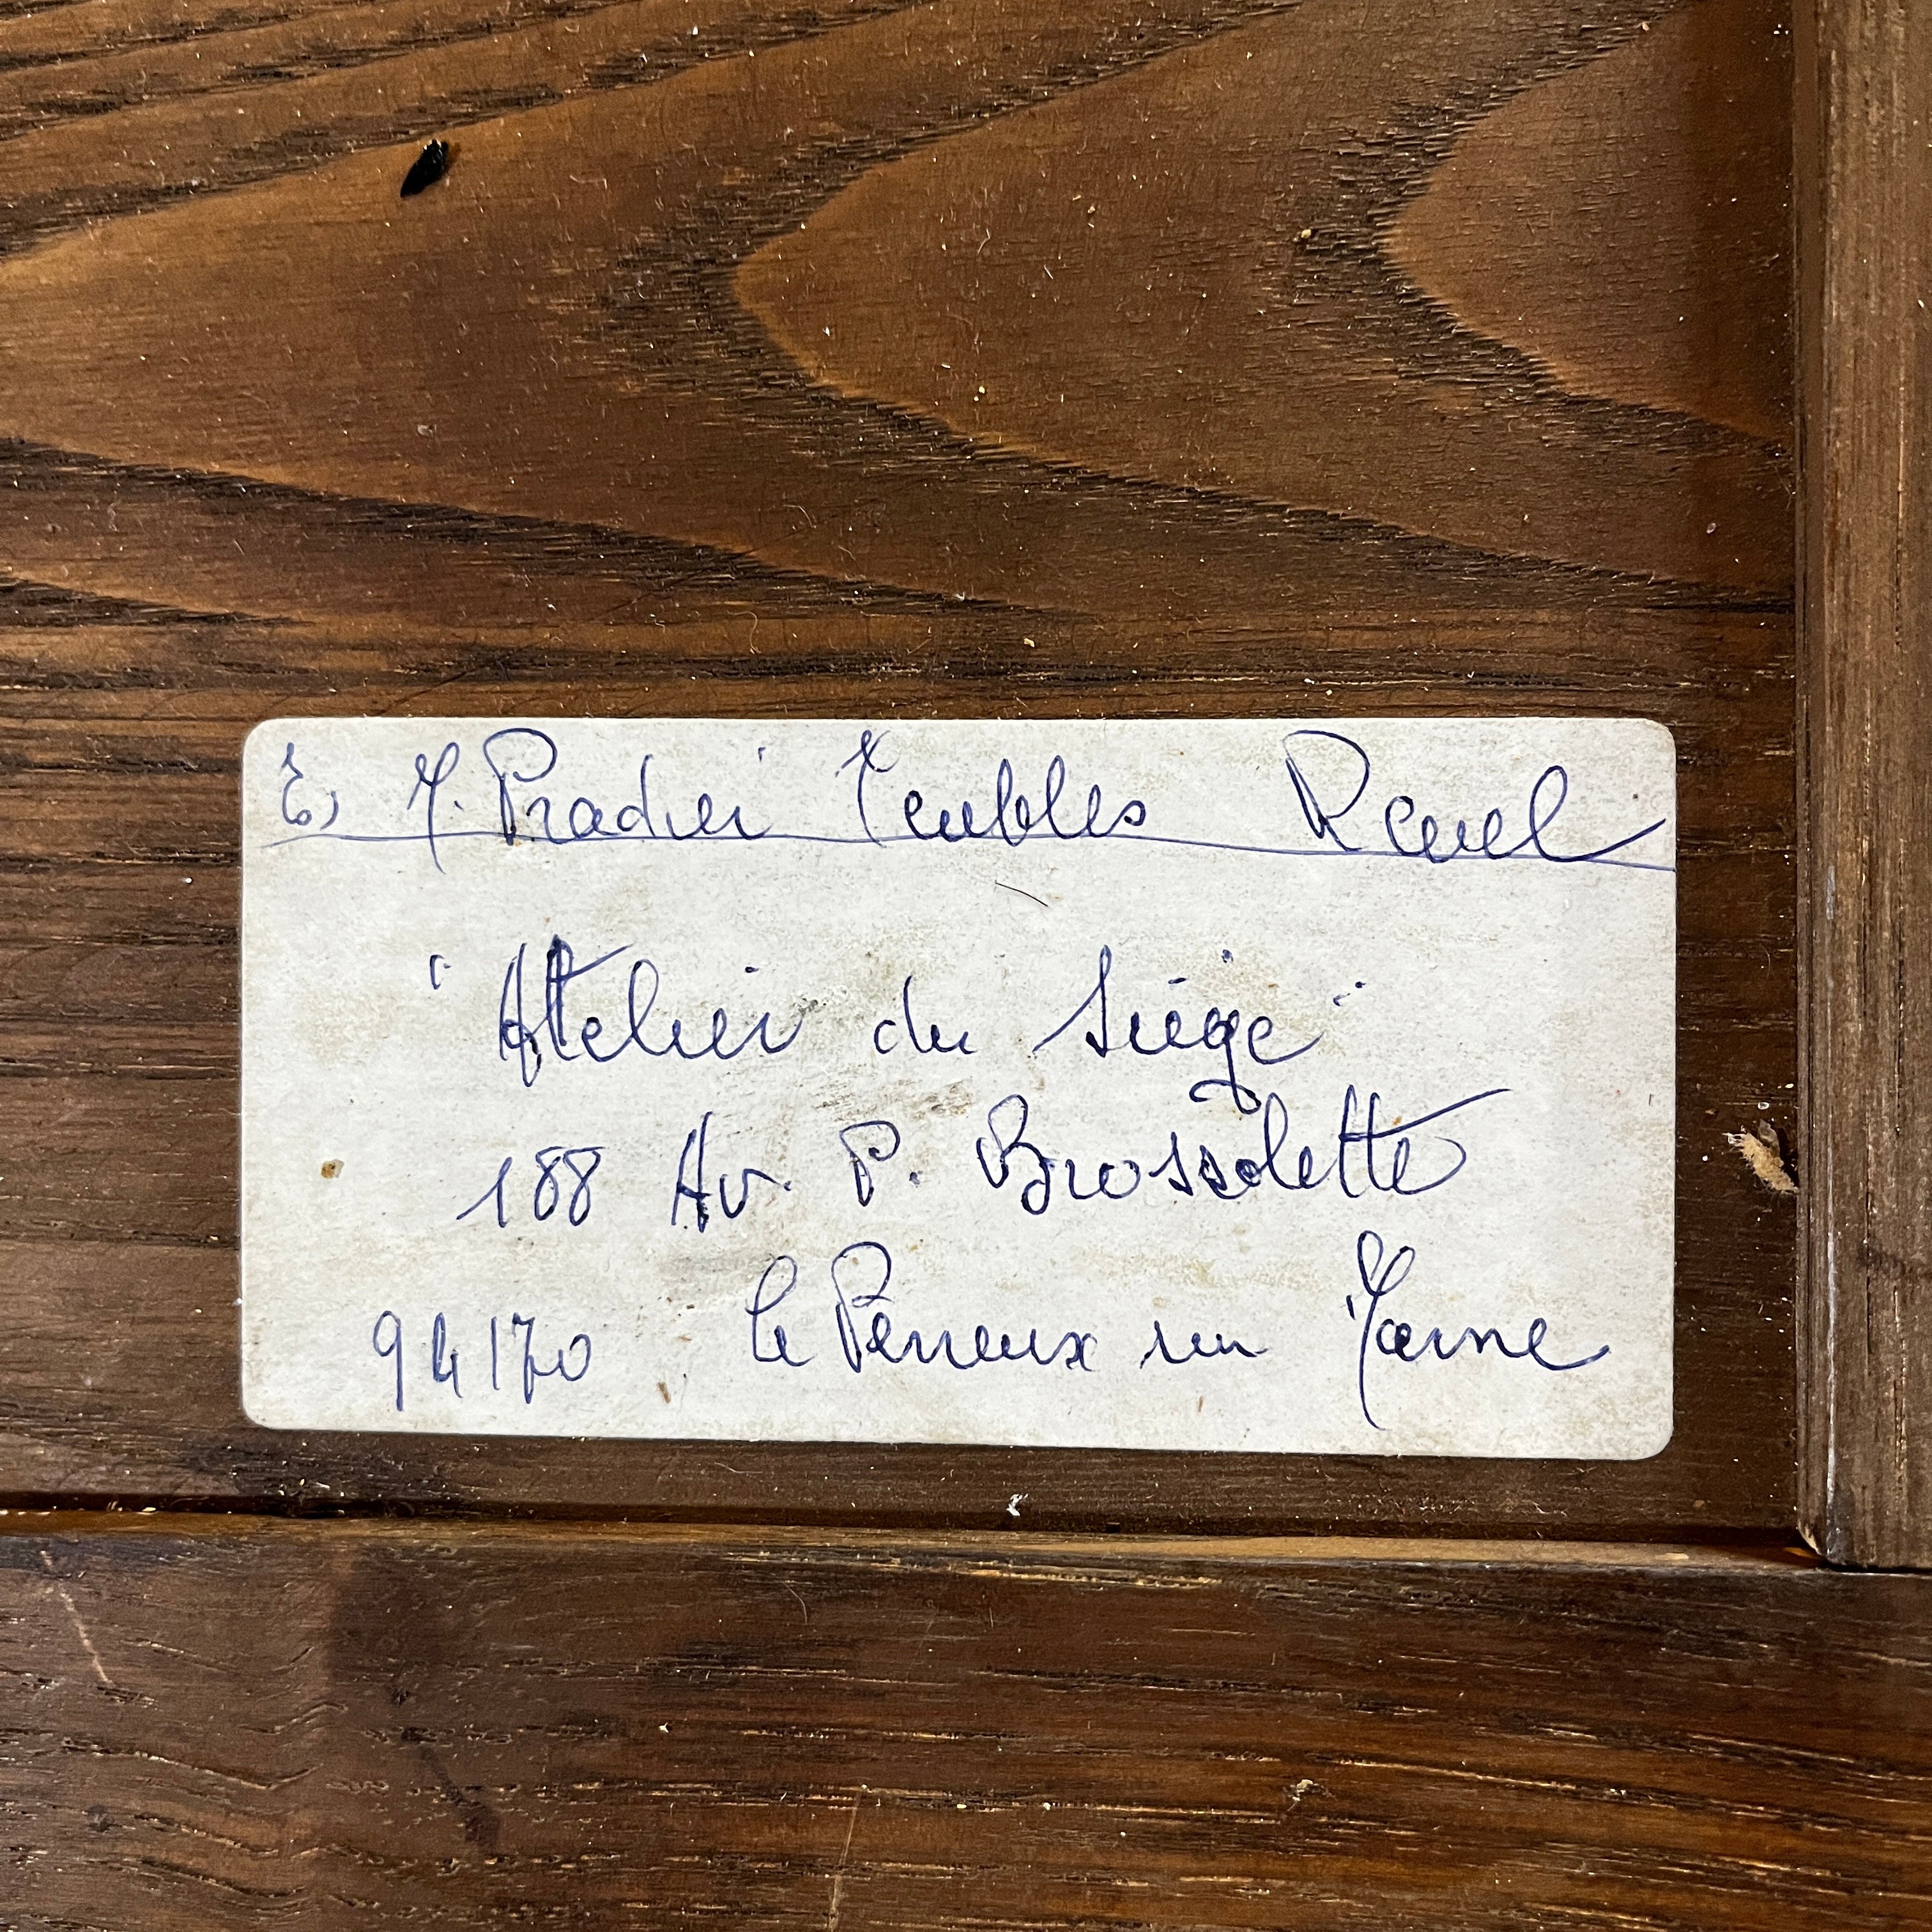 Ets M. Pradier Meubles Revel
"Atelier du Siège"
188 Av. P. Brossolette
94170 Le Perreux sur Marne